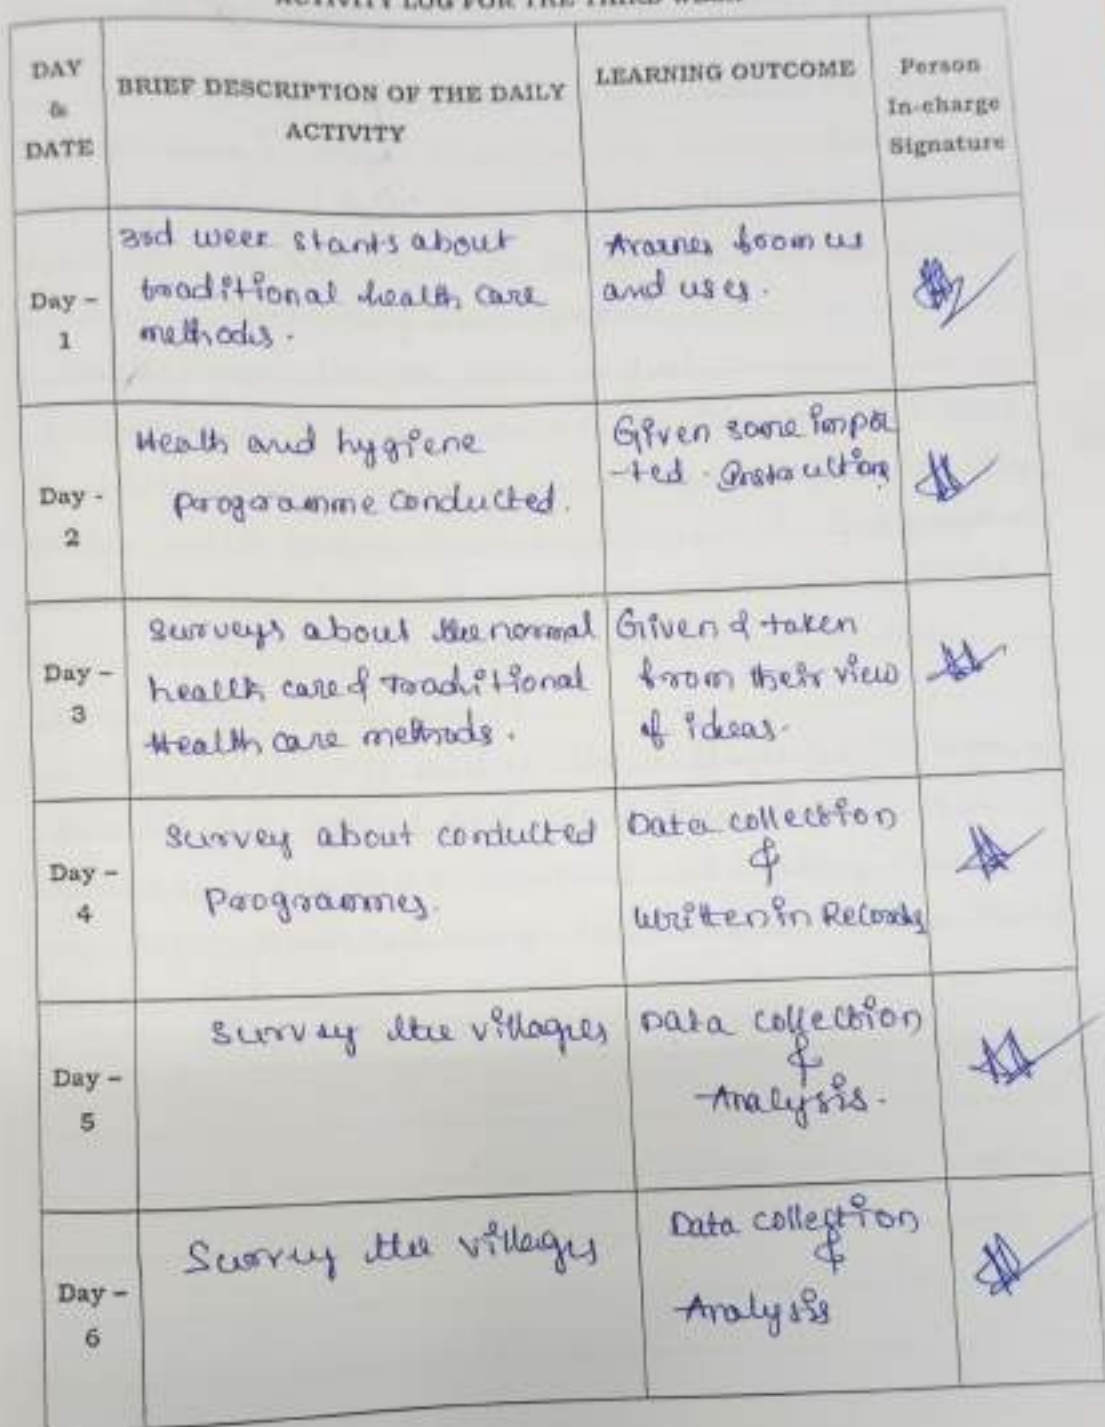 ACTIVITY LOG FOR THE THIRD WEEK
DAY
&
DATE
BRIEF DESCRIPTION OF THE DAILY
ACTIVITY
LEARNING OUTCOME
Person
In-charge
Signature
Day –
1
3rd week starts about
traditional health care
methods.
from us
and uses.
Day -
2
Health and hygiene
programme conducted.
Given some impor
-ted
Day –
3
surveys about the normal
health care & traditional
Health care methods.
Given & taken
from their view
of ideas.
Day –
4
survey about conducted
programmes.
Data collection
&
written in Records
Day –
5
survey the villages
Data collection
&
Analysis.
Day –
6
Survey the villages
Data collection
&
Analysis